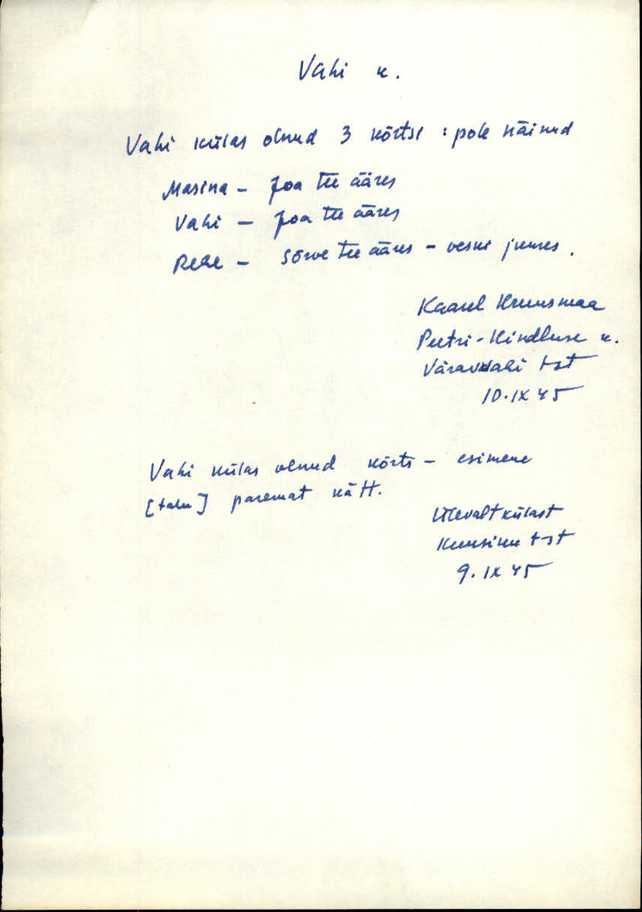 Vahi k.
Vahi külas olnud 3 kõrtsi : pole näinud
Masina – Joa tee ääres
Vahi – Joa tee ääres
Rehe – Sõrve tee ääres – veski juures.
Kaarel Kruusmaa
Peetri-Kindluse k.
Väravahi t-st
10.IX 45
Vahi külas olnud kõrts – esimene
[talu] paremat kätt.
Ülevalt külast
t-st
9.IX 45